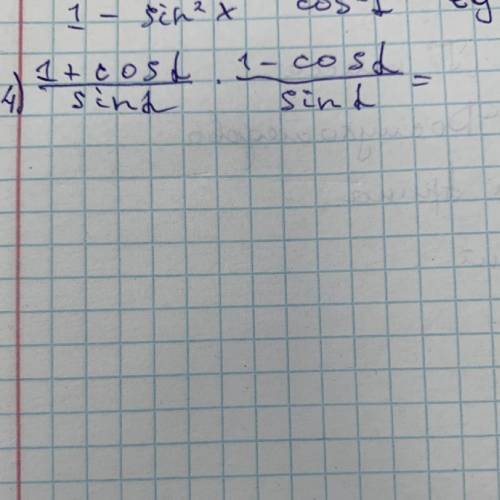 1 - sin² x
4) (1 + cos α)/(sin α) · (1 - cos α)/(sin α) =